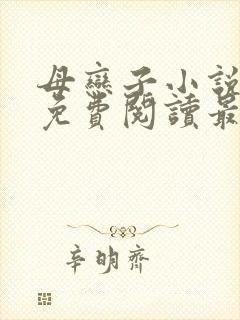 母戀子小說
免費閱讀最
辛明齊